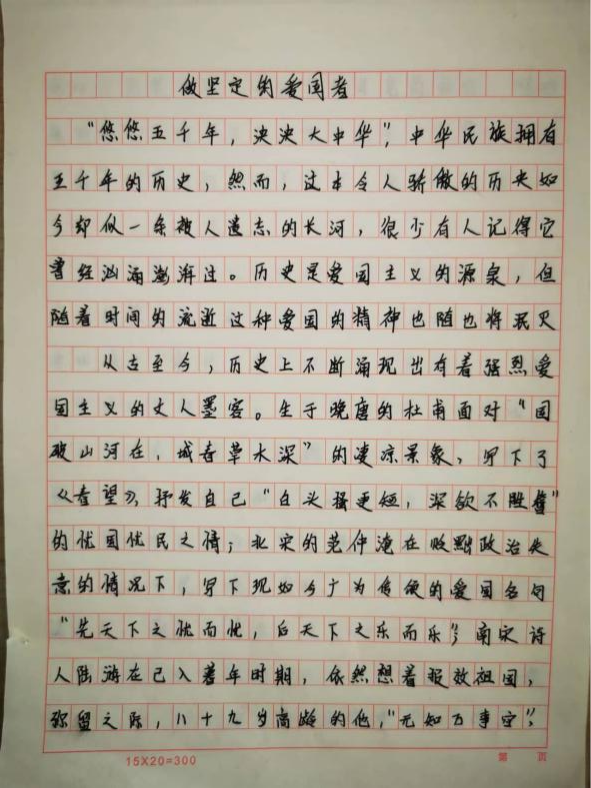 做坚定的爱国者
“悠悠五千年，泱泱大中华”，中华民族拥有
五千年的历史，然而，这本令人骄傲的历史如
今却似一条被人遗忘的长河，很少有人记得它
曾经汹涌澎湃过。历史是爱国主义的源泉，但
随着时间的流逝这种爱国的精神也随也将泯灭
从古至今，历史上不断涌现出有着强烈爱
国主义的文人墨客。生于晚唐的杜甫面对“国
破山河在，城春草木深”的凄凉景象，写下了
《春望》，抒发自己“白头搔更短，浑欲不胜簪”
的忧国忧民之情；北宋的范仲淹在政治失
意的情况下，写下现如今广为传颂的爱国名句
“先天下之忧而忧，后天下之乐而乐”；南宋诗
人陆游在已入暮年时期，依然想着报效祖国，
弥留之际，八十九岁高龄的他，“元知万事空”，
15X20=300
第 页